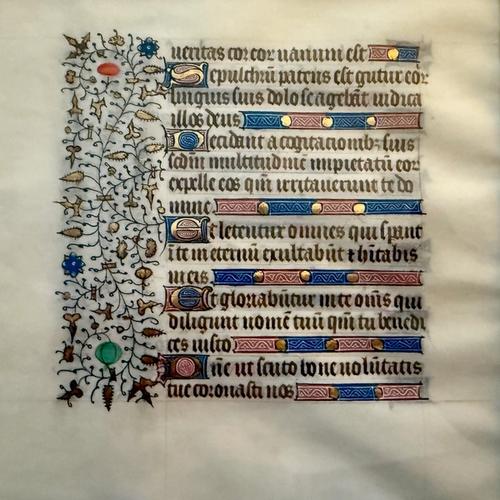 ueritas cor eor uanum est
Sepulchrū patens est gutur eor
linguis suis dolose agebāt iudica
illos deus
Decidant a cogitacionibꝫ suis
scdm̄ multitudinē impietatū eor
expelle eos qm̄ irritauerunt te do
mine
Et letentur omnes qui sperāt
i te in eternū exultabūt ⁊ hītabis
in eis
Et gloriabūtur in te om̄s qui
diligunt nomē tuū qm̄ tu benedi
ces iusto
Dn̄e ut scuto bone uolūtatis
tue coronasti nos